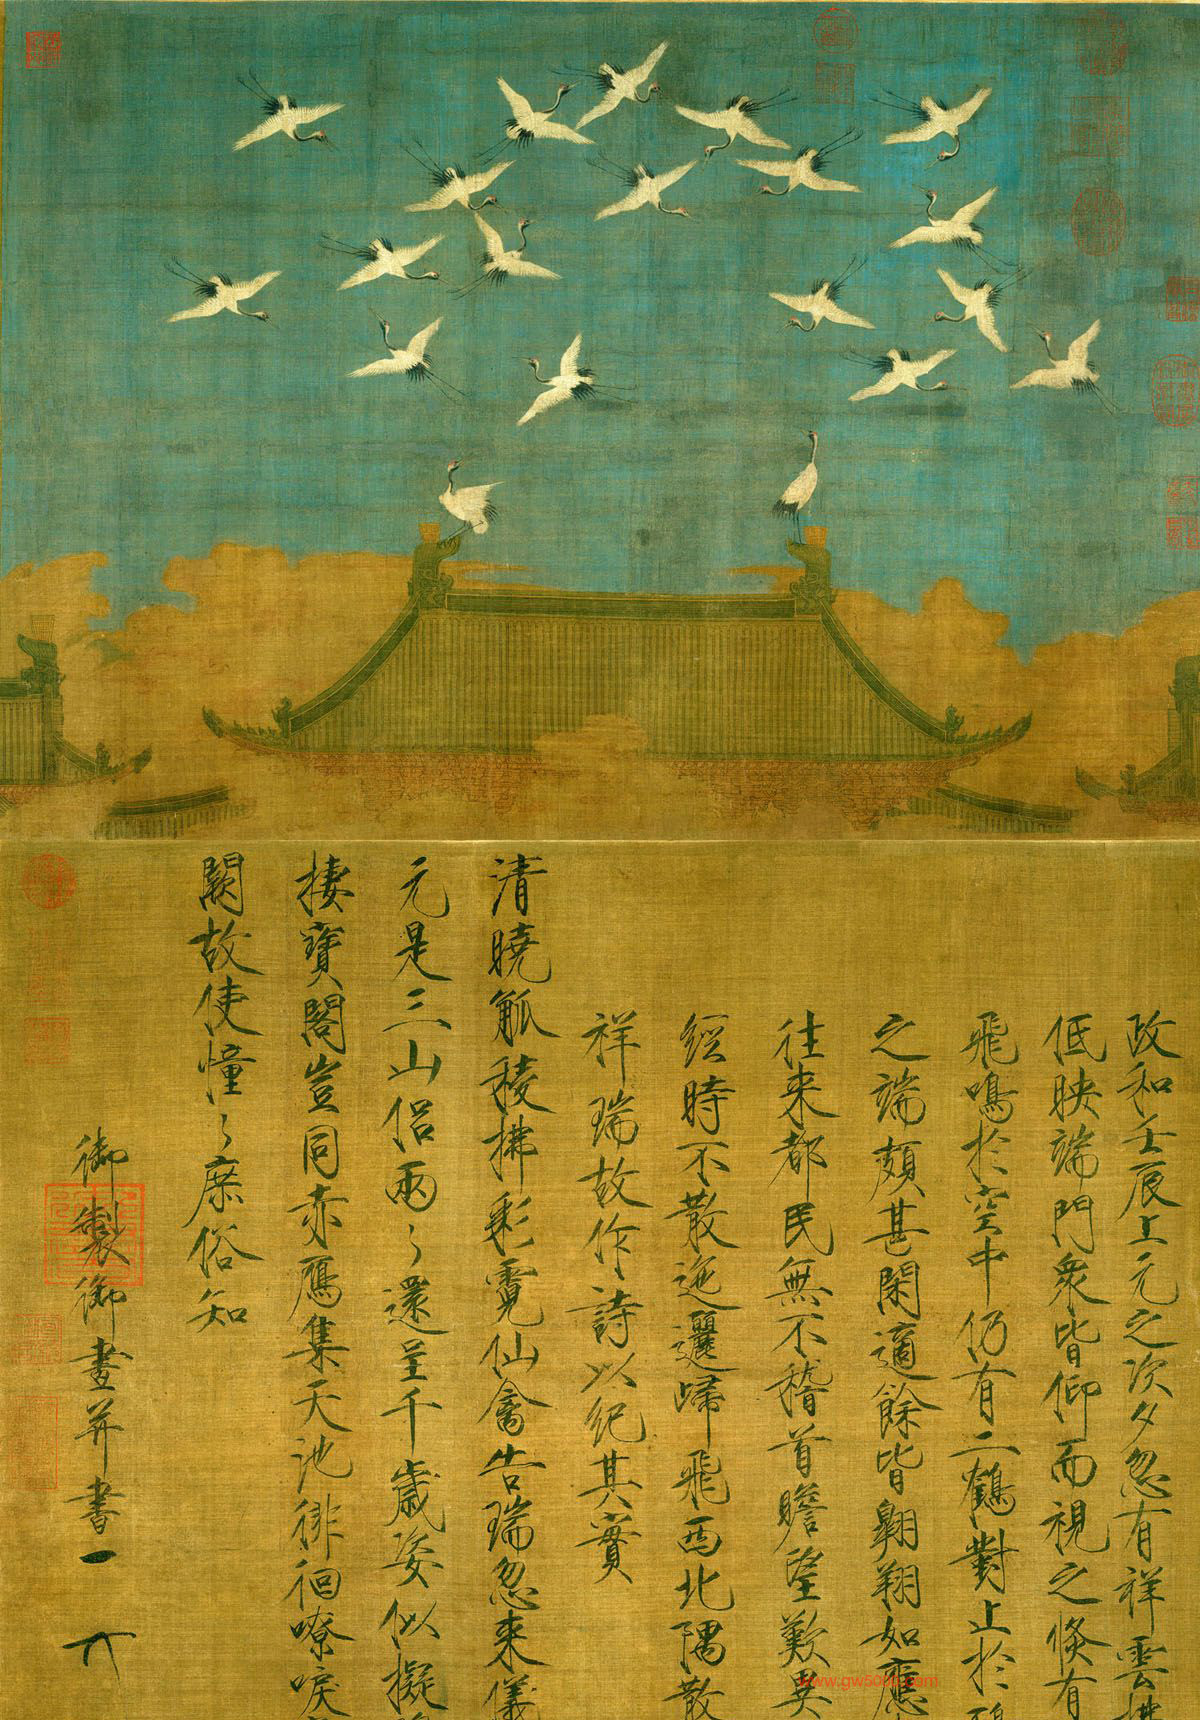 政和壬辰上元之次夕忽有祥雲拂
低映端門衆皆仰而視之倏有
飛鳴於空中仍有二鶴對止於
之端頗甚閑適餘皆翱翔如應
往來都民無不稽首瞻望歎異
經時不散迤邐歸飛西北隅散
祥瑞故作詩以紀其實
清曉觚稜拂彩霓仙禽告瑞忽來儀
元是三山侶兩〻還呈千歲姿似擬
棲寶閣豈同赤鴈集天池徘徊嘹唳
闕故使憧〻庶俗知
御製御畫并書